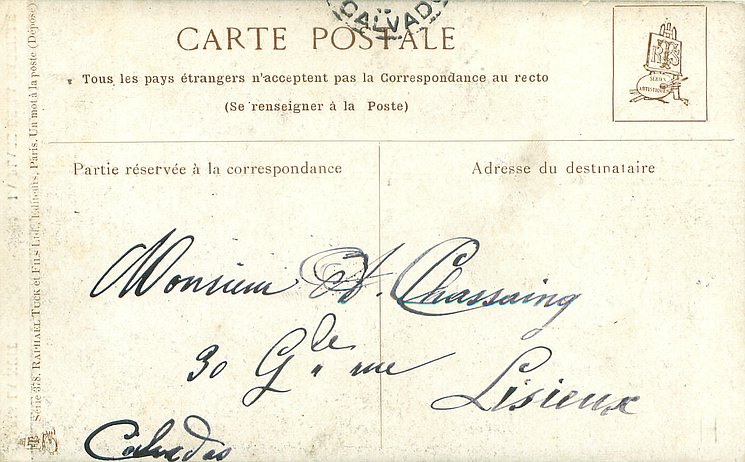 CALVADOS
CARTE POSTALE
Tous les pays étrangers n'acceptent pas la Correspondance au recto
(Se renseigner à la Poste)
R T & S
SÉRIES
ARTISTIQUES
Partie réservée à la correspondance
Adresse du destinataire
Monsieur A. Chassaing
30 Gde rue
Lisieux
Calvados
Série 378. RAPHAËL TUCK et FILS Ltd., Editeurs, Paris. Un mot à la poste (Déposé)